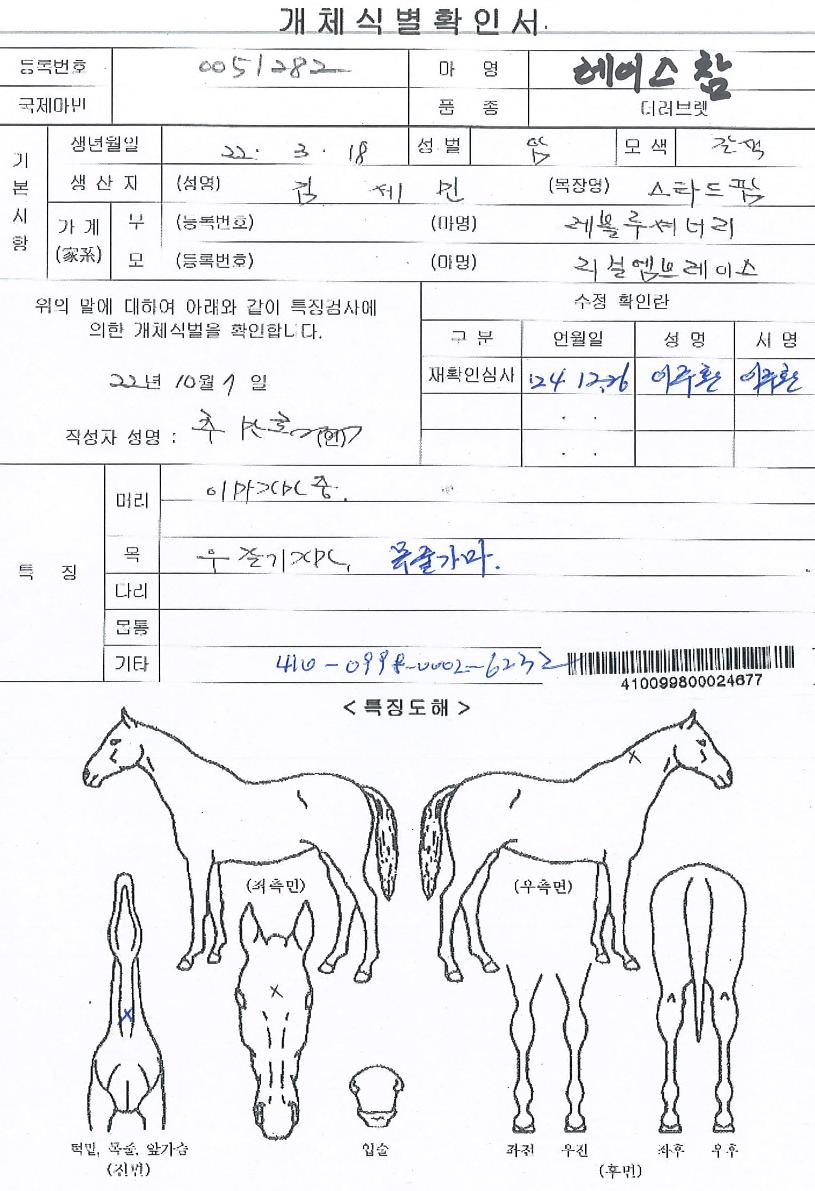 개체식별확인서
등록번호 0051282 마 명 레이스참
국제마번 품 종 더러브렛
기본사항
생년월일 22. 3. 18 성별 암 모색 갈색
생산지 (성명) 김제민 (목장명) 스타드팜
가계(家系) 부 (등록번호) (마명) 레볼루셔너리
모 (등록번호) (마명) 리설엠브레이스
위의 말에 대하여 아래와 같이 특징검사에
의한 개체식별을 확인합니다.
22년 10월 7일
작성자 성명 : (인)
수정 확인란
구분 연월일 성명 서명
재확인심사 '24. 12. 26 이주환 이주환
. .
. .
특징
머리
목 목줄가마.
다리
몸통
기타 410-0998-0002-6232
410099800024677
< 특징도해 >
(좌측면) (우측면)
턱밑, 목줄, 앞가슴 입술 좌전 우전 좌후 우후
(전면) (후면)